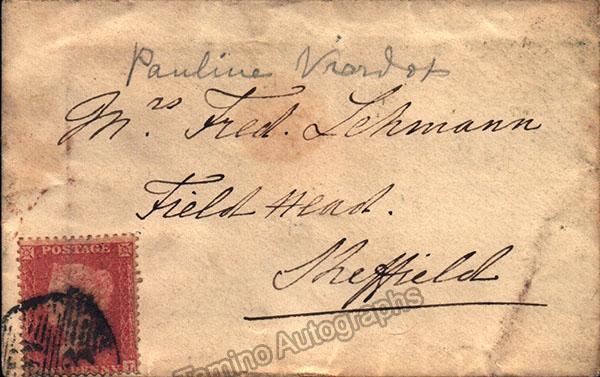 Pauline Viardot
Mrs Fred. Lehmann
Field Head.
Sheffield
POSTAGE
Tamino Autographs